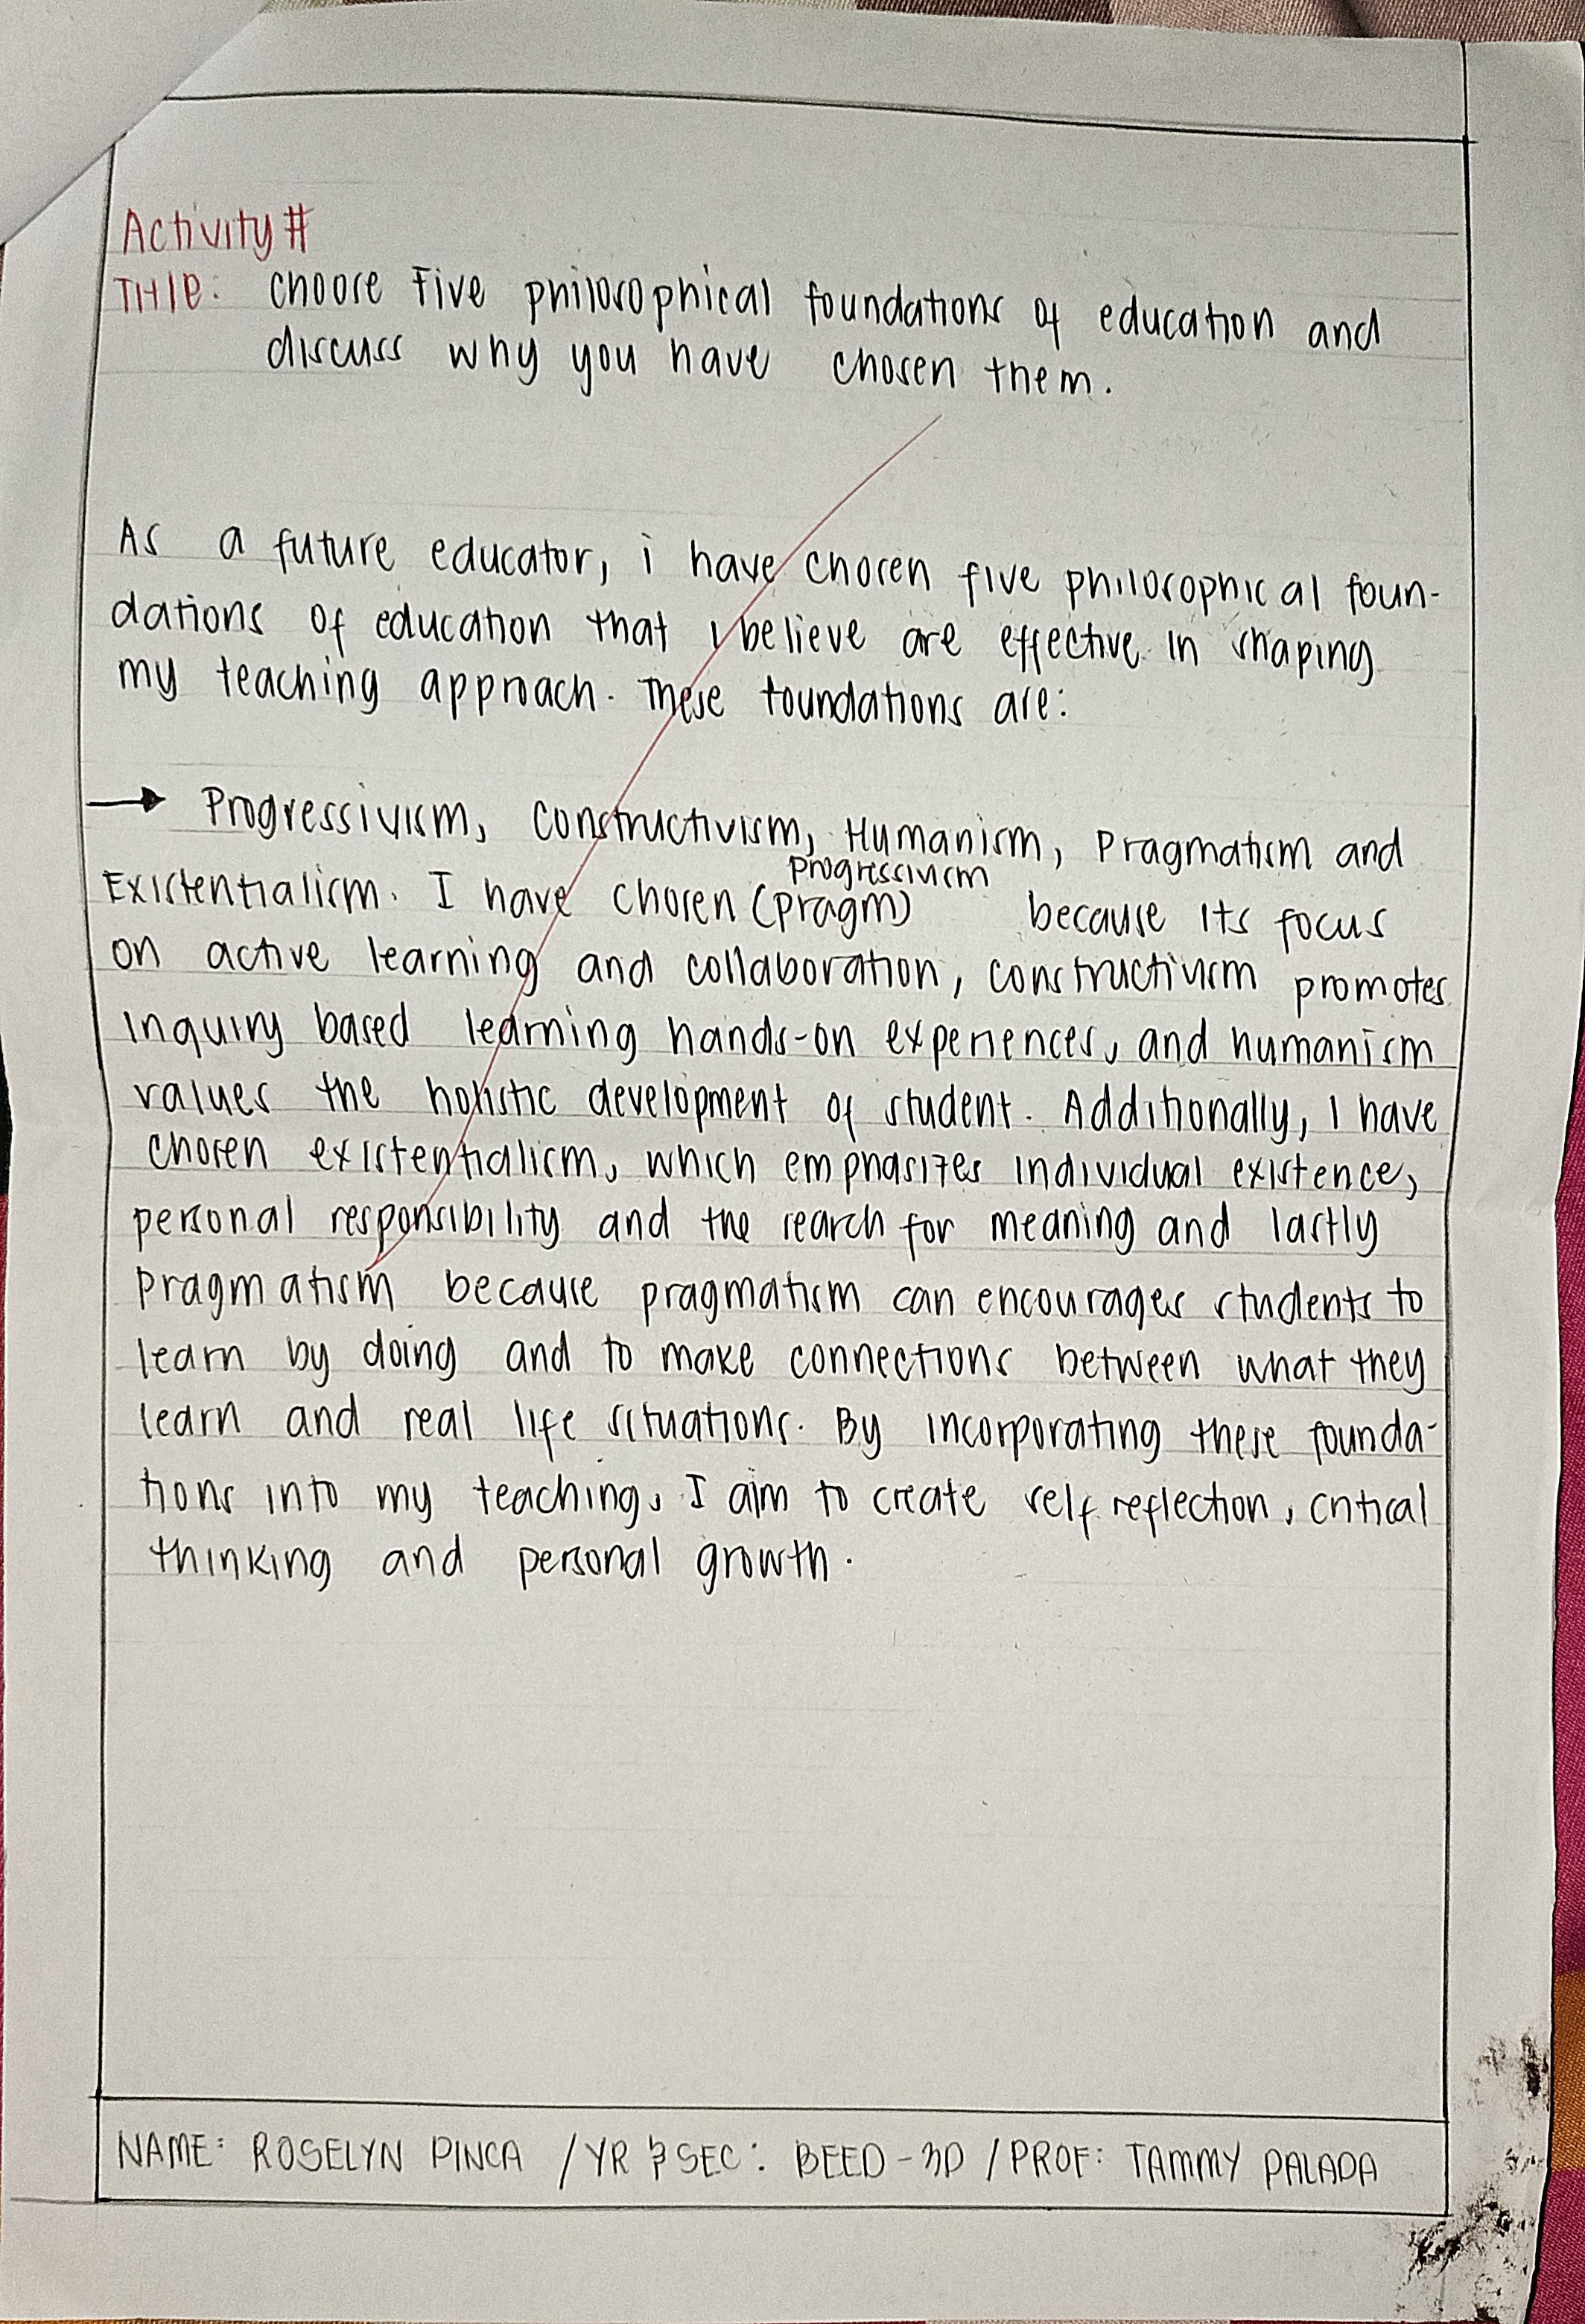 Activity #
Title: choose Five philosophical foundations of education and
discuss why you have chosen them.
As a future educator, i have chosen five philosophical foun-
dations of education that I believe are effective in shaping
my teaching approach. These foundations are:
→ Progressivism, Constructivism, Humanism, Pragmatism and
Existentialism. I have chosen (pragm) progressivism because its focus
on active learning and collaboration, constructivism promotes
inquiry based learning hands-on experiences, and humanism
values the holistic development of student. Additionally, I have
chosen existentialism, which emphasizes individual existence,
personal responsibility and the search for meaning and lastly
pragmatism because pragmatism can encourages students to
learn by doing and to make connections between what they
learn and real life situations. By incorporating these founda-
tions into my teaching, I aim to create self reflection, critical
thinking and personal growth.
NAME: ROSELYN PINCA / YR & SEC: BEED-3D / PROF: TAMMY PALADA